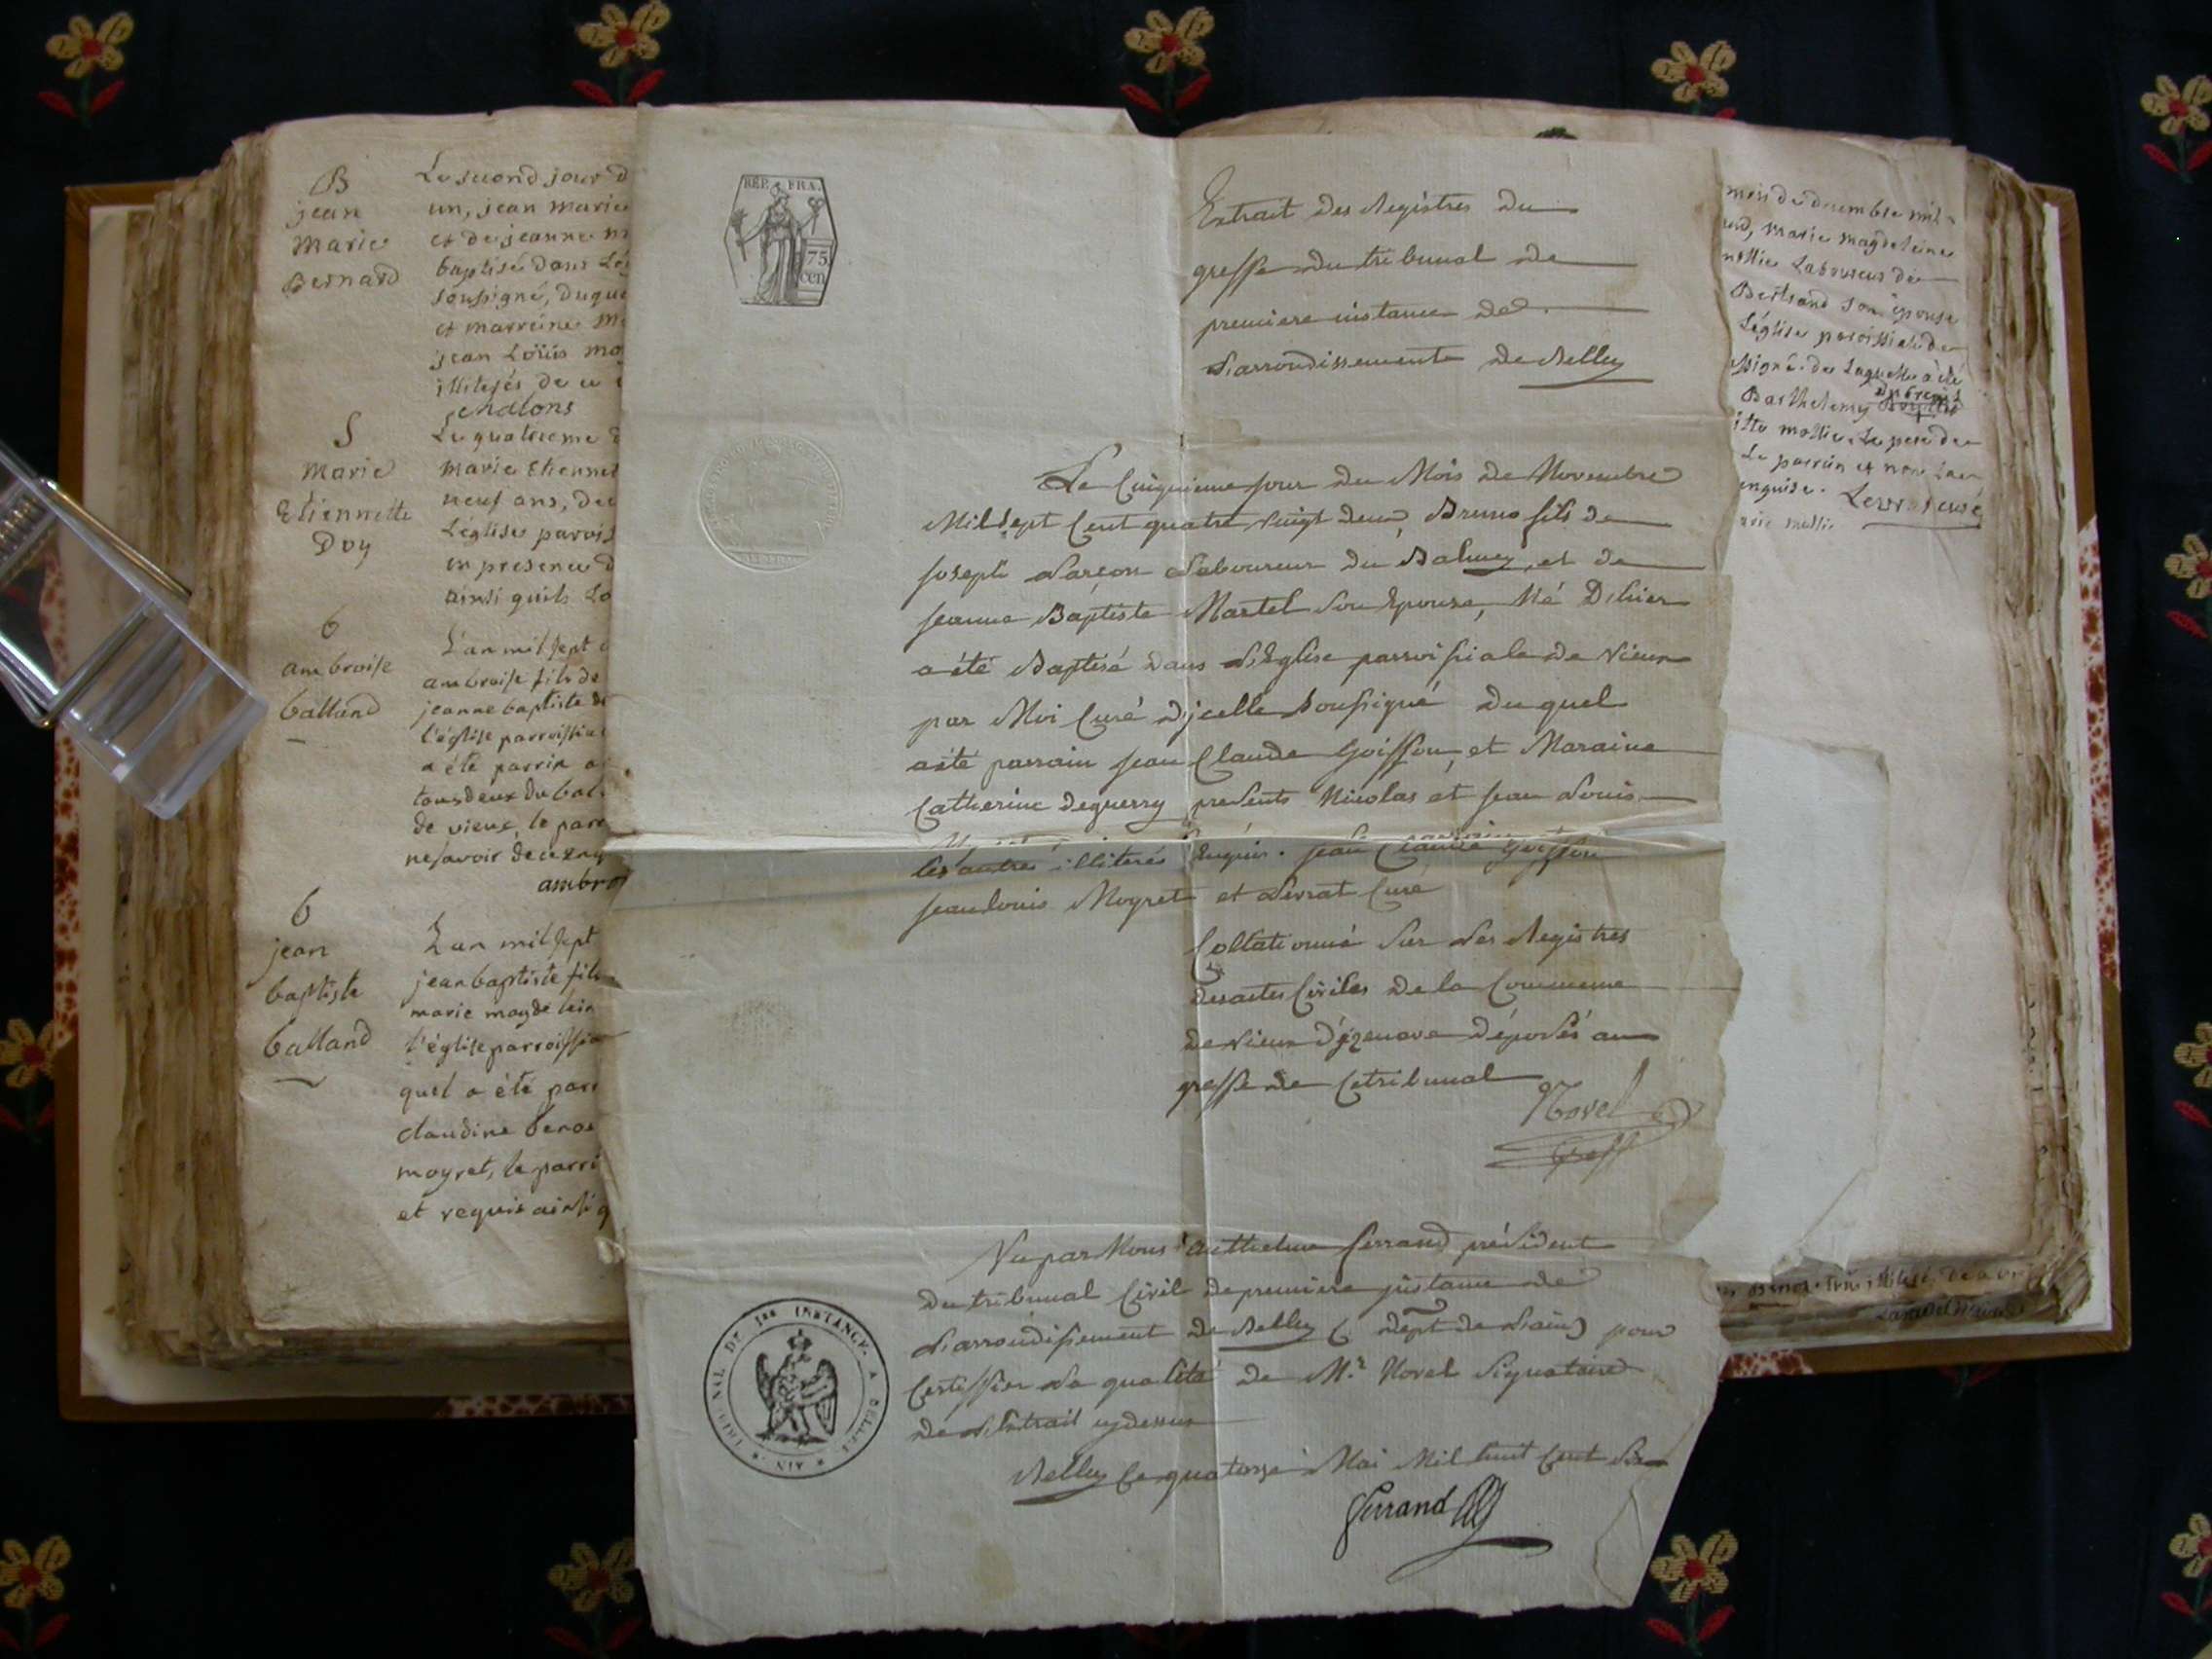 B
jean
marie
Bernard
Le second jour d
un, jean marie
et de jeanne m
baptisé dans Lég
soussigné, duque
et marreine m
jean Loüis mo
illiterés de ce
S
marie
Etiennette
Doy
Le quatrieme d
marie Etiennet
neuf ans, dec
L'église parois
en presence d
ainsi quils
6
ambroise
balland
L'an mil sept c
ambroise fils de
jeanne baptiste
l'église parroissia
a été parrin
tous deux du bal
de vieux, le parr
ne savoir de ce enq
ambro
6
jean
baptiste
balland
L'an mil sept
jean baptiste fils
marie magdelein
l'église parroissia
quel a été parr
claudine
moyret, le parri
et requis ainsi q
REP. FRA.
75
cen
Extrait des Registres du
greffe du tribunal de
premiere instance de
L'arrondissement de Belley
Le Cinquieme jour du Mois de Novembre
Mil Sept Cent quatre vingt deux, Bruno fils de
joseph Larçon Laboureur du Balmey, et de
jeanne Baptiste Martel Son Epouse, Né D'hier
a été Baptisé dans L'Eglise parroissiale de Vieux
par Moi Curé d'jcelle Soussigné duquel
a été parrain jean Claude Goiffon, et Maraine
Catherine deguerry presents Nicolas et jean Louis
les autres illiterés Enquis. jean Claude Goiffon
jean Louis Moyret et Levrat Curé
Collationné Sur Les Registres
des actes Civiles de la Commune
de Vieux d'jzenave Déposés au
greffe de Ce tribunal
Novel
Greff
Vu par Nous Anthelme Ferrand président
du tribunal Civil de premiere jnstance de
L'arrondissement de Belley (dept de L'ain) pour
Certiffier La qualité de Mr Novel Signataire
de L'Extrait cydessus
Belley Ce quatorze Mai Mil huit Cent
Ferrand
TRIBUNAL DE 1ere INSTANCE A BELLEY * AIN *
mois de decembre mil
marie magdeleine
mollie Laboureur de
Bertrand son épouse
L'église paroissiale de
ssigné. de Laquelle a été
Barthelemy
mollie. Le pere de
Le parrain et non La
enquise. Levrat curé
marie mollie